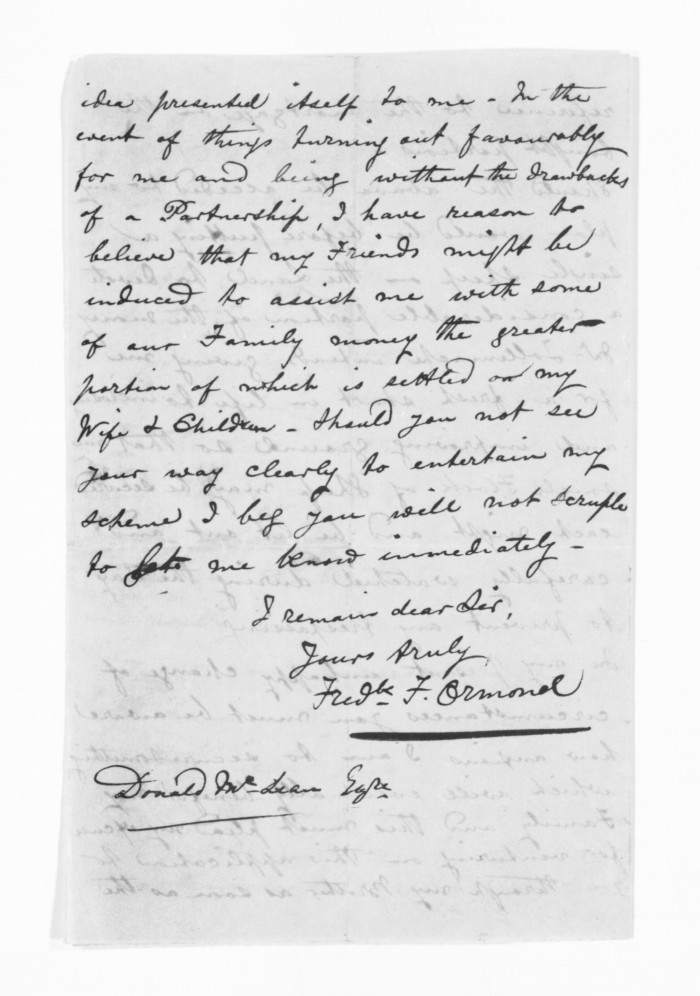 idea presented itself to me - In the
event of things turning out favourably
for me and being without the drawbacks
of a Partnership, I have reason to
believe that my Friends might be
induced to assist me with some
of our Family money the greater
portion of which is settled on my
Wife & Children - Should you not see
your way clearly to entertain my
scheme I beg you will not scruple
to let me know immediately -
I remain dear Sir,
Yours truly,
Fredk. F. Ormond
Donald McLean Esqre